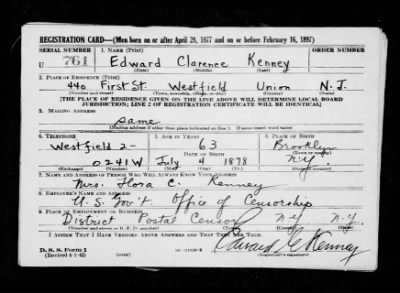 REGISTRATION CARD—(Men born on or after April 28, 1877 and on or before February 16, 1897)
SERIAL NUMBER 1. NAME (Print) ORDER NUMBER
U 761 Edward Clarence Kenney
(First) (Middle) (Last)
2. PLACE OF RESIDENCE (Print)
440 First St. Westfield Union N.J.
(Number and street) (Town, township, village, or city) (County) (State)
[THE PLACE OF RESIDENCE GIVEN ON THE LINE ABOVE WILL DETERMINE LOCAL BOARD
JURISDICTION; LINE 2 OF REGISTRATION CERTIFICATE WILL BE IDENTICAL]
3. MAILING ADDRESS
same
[Mailing address if other than place indicated on line 2. If same insert word same]
4. TELEPHONE 5. AGE IN YEARS 6. PLACE OF BIRTH
Westfield 2- 63 Brooklyn
DATE OF BIRTH (Town or county)
0241W July 4 1878 N.Y.
(Exchange) (Number) (Mo.) (Day) (Yr.) (State or country)
7. NAME AND ADDRESS OF PERSON WHO WILL ALWAYS KNOW YOUR ADDRESS
Mrs. Flora C. Kenney
8. EMPLOYER'S NAME AND ADDRESS
U.S. Gov't. Office of Censorship
9. PLACE OF EMPLOYMENT OR BUSINESS
District Postal Censor N.Y. N.Y.
(Number and street or R. F. D. number) (Town) (County) (State)
I AFFIRM THAT I HAVE VERIFIED ABOVE ANSWERS AND THAT THEY ARE TRUE.
D. S. S. Form 1
(Revised 4-1-42) Edward C Kenney
(Registrant's signature)